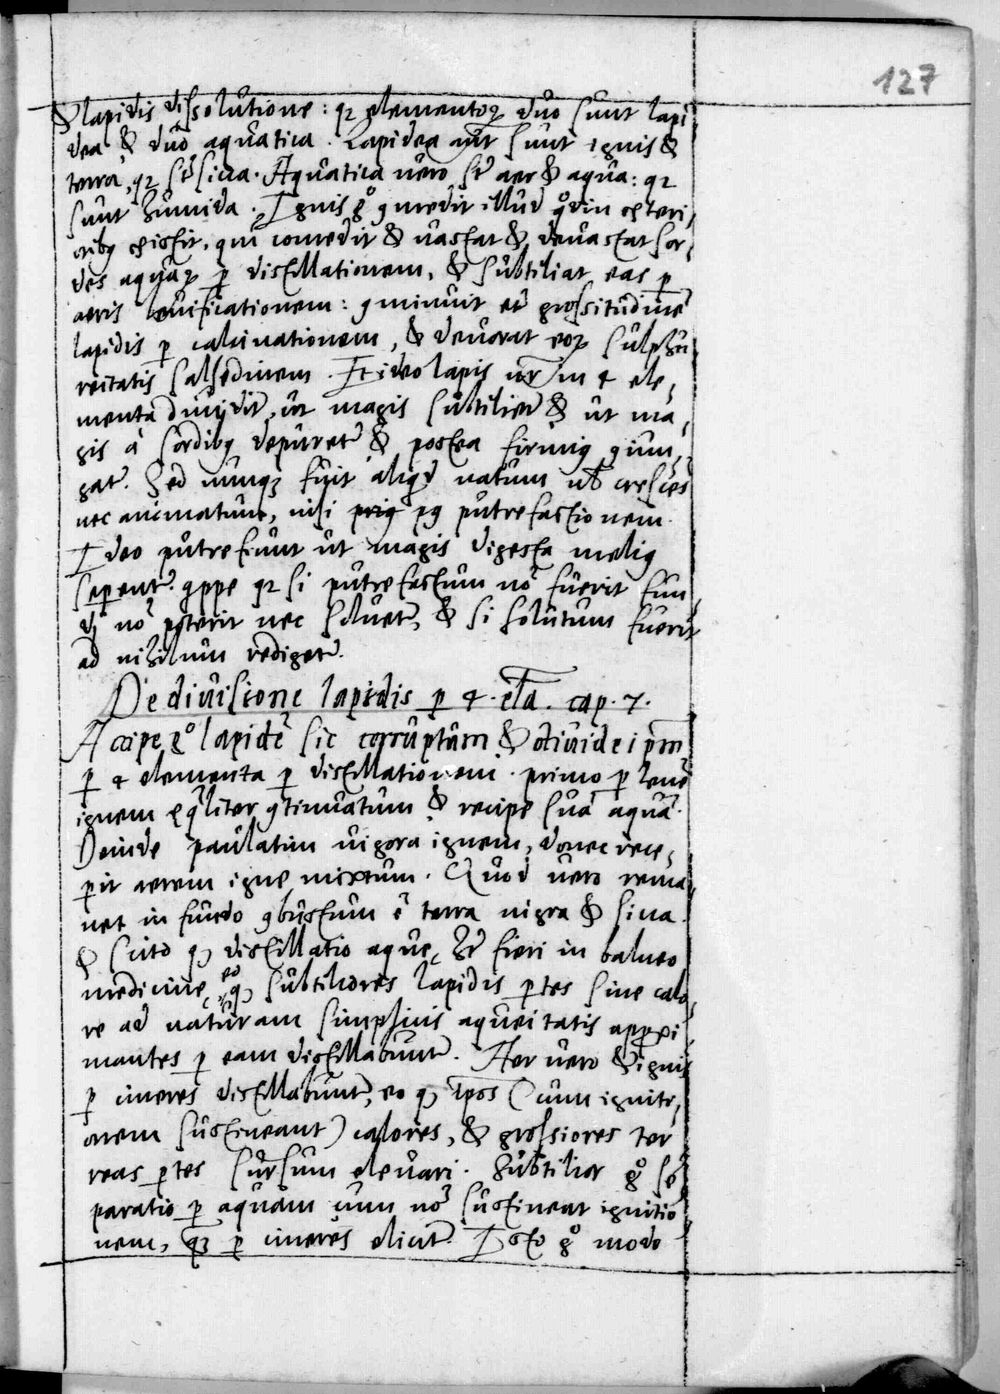 127
& lapidis dissolutione: qꝛ elementoꝝ duo sunt lapi
dea & duo aquatica. Lapidea aūt sunt ignis &
terra, qꝛ sūt sicca. Aquatica uero sūt aer & aqua: qꝛ
sunt humida. Ignis gͦ illud
qui comedit & uastat & deuastat sor,
des aquaꝝ ꝑ distillationem, & subtiliat eas ꝑ
aeris leuificationem: ꝯminuit et grossitudinē
lapidis ꝑ calcinationem, & deuorat eoꝝ sulphu
reitatis salsedinem. Et ideo lapis nr̄ in 4 ele,
menta diuiditr, ut magis subtilietr & ut ma,
gis à sordibꝰ depuretr & postea firmiꝰ ꝯiun,
gatr. Sed nunqꝫ fuit aliqd natum uł cresces
nec animatum, nisi priꝰ pꝰ putrefactionem.
Ideo putrefiunt ut magis digesta meliꝰ
seperentr. qppe qꝛ si putrefactum nō fuerit fun,
di nō poterit nec soluetr, & si solutum fuerit
ad nihilum redigetr.
De diuisione lapidis ꝑ 4. elta. cap. 7.
Accipe gͦ lapidē sic corruptum & diuide ipm̄
ꝑ 4 elementa ꝑ distillationem. primo ꝑ lenē
ignem eqliter ꝯtinuatum & recipe suā aquā.
Deinde paulatim uigora ignem, donec rece,
perit aerem igne mixtum. Quod uero rema,
net in fundo ꝯbustum ē terra nigra & sicca.
& scito qꝫ distillatio aque hꝫ fieri in balneo
medicine, eo qꝫ subtiliores lapidis ꝑtes sine calo,
re ad naturam simplicis aqueitatis approxi,
mantes ꝑ eam distillabuntr. Aer uero & ignis
ꝑ cineres distillabuntr, eo qꝫ ip̄os (cum igniti,
onem sustineant) calores, & grossiores ter
reas ꝑtes sursum eleuari. Subtilior gͦ se
paratio ꝑ aquam cum nō sustineat ignitio
nem, qꝫ ꝑ cineres elicitr. Isto gͦ modo